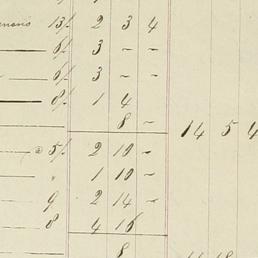 13/ 2 3 4
6/ 3 - -
6/ 3 - -
8/ 1 4
8 -
14 5 4
@ 5/ 2 10 -
" 1 10 -
9 2 14 -
8 4 16
8